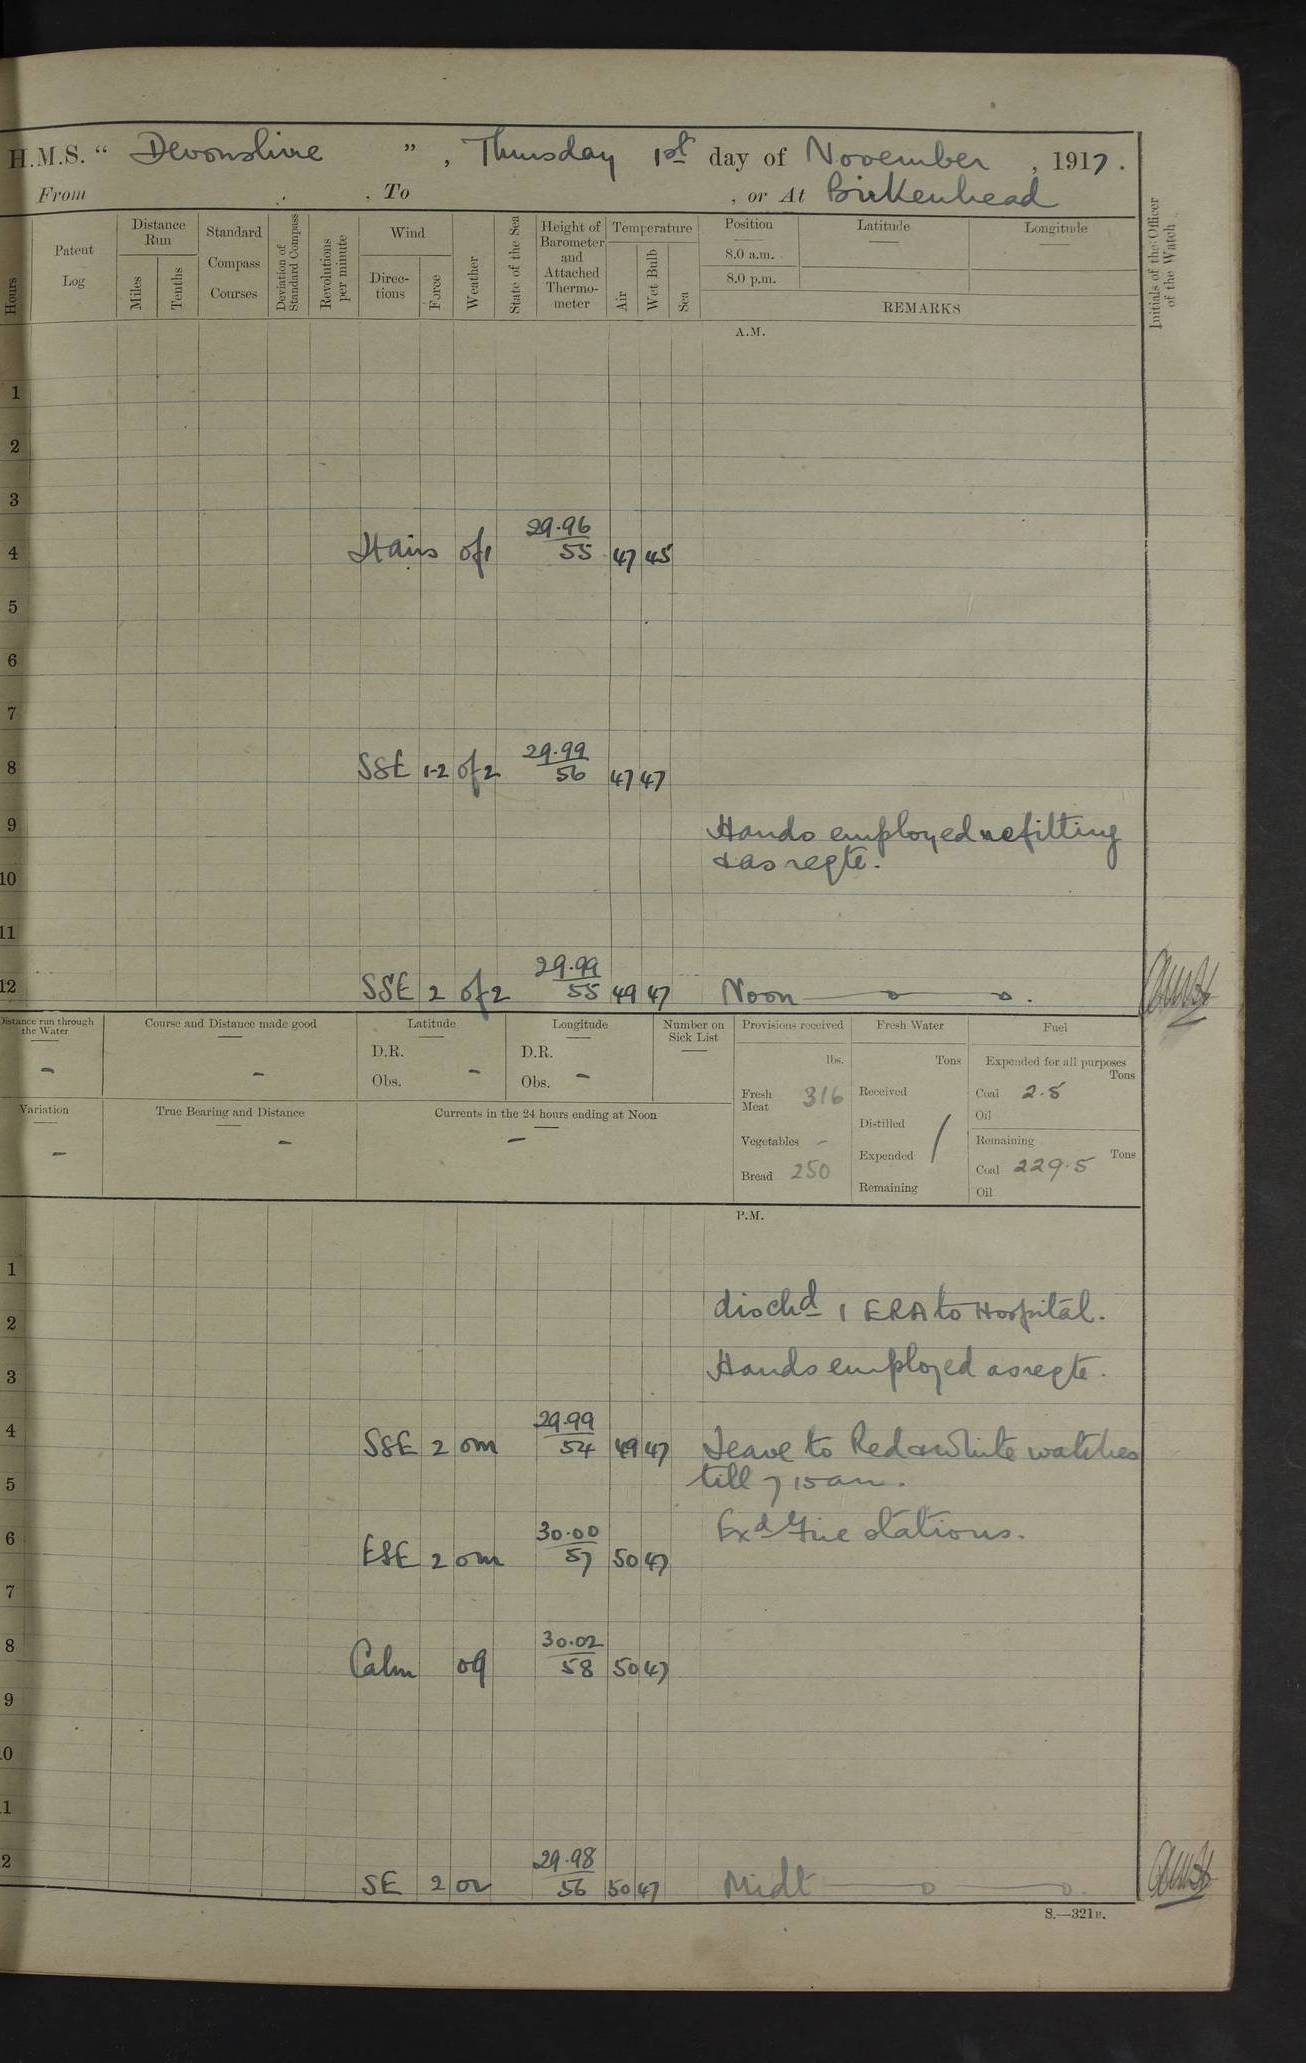 H.M.S. “ Devonshire ” , Thursday 1st day of November , 1917 .
From , To , or At Birkenhead
Hours
Patent Log
Distance Run
Miles
Tenths
Standard Compass Courses
Deviation of Standard Compass
Revolutions per minute
Wind
Direc- tions
Force
Weather
State of the Sea
Height of Barometer and Attached Thermo- meter
Temperature
Air
Wet Bulb
Sea
Position
8.0 a.m.
8.0 p.m.
Latitude
Longitude
REMARKS
Initials of the Officer of the Watch
A.M.
1
2
3
29.96
4 55 47 45
5
6
7
29.99
8 SSE 1-2 of2 56 47 47
9 Hands employed refitting
10 & as reqte.
11
29.99
12 SSE 2 of2 55 49 47 Noon
Distance run through the Water
-
Course and Distance made good
-
Latitude
D.R.
Obs. -
Longitude
D.R.
Obs. -
Number on Sick List
Variation
-
True Bearing and Distance
-
Currents in the 24 hours ending at Noon
-
Provisions received
lbs.
Fresh Meat 316
Vegetables -
Bread 250
Fresh Water
Tons
Received
Distilled
Expended
Remaining
Fuel
Expended for all purposes
Tons
Coal 2.5
Oil
Remaining
Tons
Coal 229.5
Oil
P.M.
1
2 dischd 1 ERA to Hospital.
3 Hands employed as reqte.
29.99
4 SSE 2 om 54 49 47 Leave to Red & White watches
5 till 7 15 am.
6 Exd Fire stations.
30.00
ESE 2 om 57 50 47
7
30.02
8 Calm og 58 50 47
9
10
11
29.98
12 SE 2 56 50 47 Midt
S.—321B.